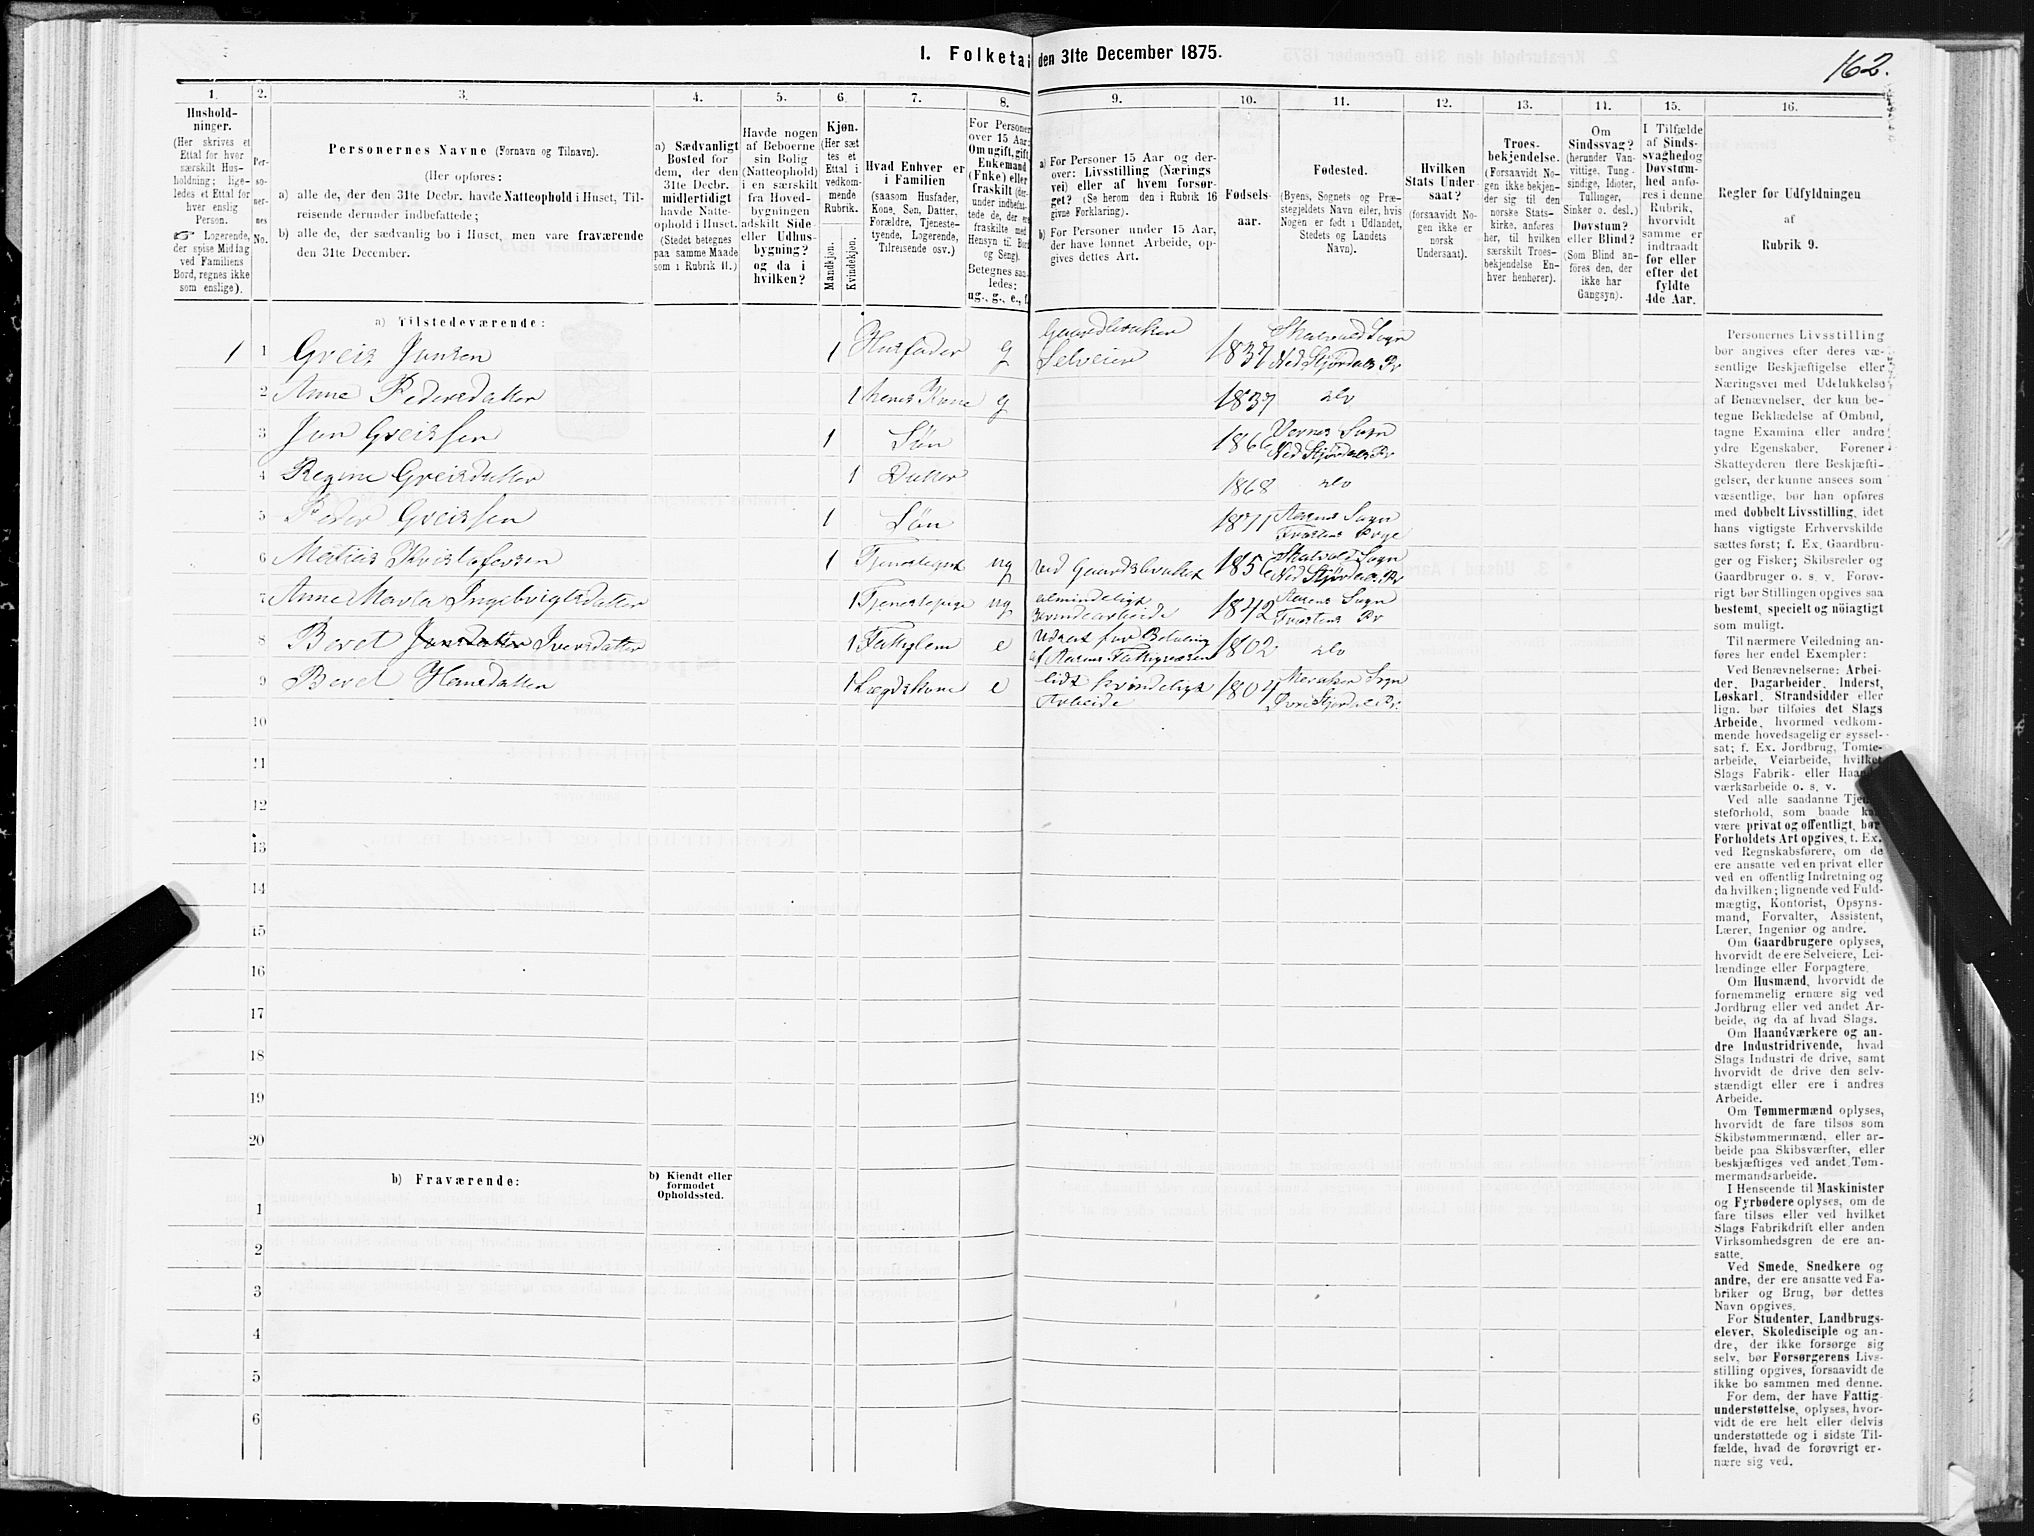 1. Folketal den 31te December 1875.
162.
1. 2. 3. 4. 5. 6. 7. 8. 9. 10. 11. 12. 13. 14. 15. 16.
Hushold-
ninger.
(Her skrives et
Ettal for hver
særskilt Hus-
holdning; lige-
ledes et Ettal for
hver enslig
Person.
☞ Logerende,
der spise Middag
ved Familiens
Bord, regnes ikke
som enslige).
Per-
so-
ner-
nes
No.
Personernes Navne (Fornavn og Tilnavn).
(Her opføres:
a) alle de, der den 31te Decbr. havde Natteophold i Huset, Til-
reisende derunder indbefattede;
b) alle de, der sædvanlig bo i Huset, men vare fraværende
den 31te December.
a) Sædvanligt
Bosted for
dem, der den
31te Decbr.
midlertidigt
havde Natte-
ophold i Huset.
(Stedet betegnes
paa samme Maade
som i Rubrik 11.)
Havde nogen
af Beboerne
sin Bolig
(Natteophold)
i en særskilt
fra Hoved-
bygningen
adskilt Side-
eller Udhus-
bygning?
og da i
hvilken?
Kjøn.
(Her sæt-
tes et
Ettal i
vedkom-
mende
Rubrik.
Mandkjøn.
Kvindekjøn.
Hvad Enhver er
i Familien
(saasom Husfader,
Kone, Søn, Datter,
Forældre, Tjeneste-
tyende, Logerende,
Tilreisende osv.)
For Personer
over 15 Aar:
Om ugift, gift,
Enkemand
(Enke) eller
fraskilt (der-
under indbefat-
tede de, der ere
fraskilte med
Hensyn til Bord
og Seng).
Betegnes saa-
ledes:
ug., g., e., f.
a) For Personer 15 Aar og der-
over: Livsstilling (Nærings-
vei) eller af hvem forsør-
get? (Se herom den i Rubrik 16
givne Forklaring).
b) For Personer under 15 Aar,
der have lønnet Arbeide, op-
gives dettes Art.
Fødsels-
aar.
Fødested.
(Byens, Sognets og Præ-
stegjeldets Navn eller, hvis
Nogen er født i Udlandet,
Stedets og Landets
Navn).
Hvilken
Stats Under-
saat?
(forsaavidt No-
gen ikke er
norsk
Undersaat).
Troes-
bekjendelse.
(Forsaavidt No-
gen ikke bekjen-
der sig til den
norske Stats-
kirke, anføres
her, til hvilken
særskilt Troes-
bekjendelse En-
hver henhører).
Om
Sindssvag?
(herunder Van-
vittige, Tung-
sindige, Idioter,
Tullinger,
Sinker o. desl.)
Døvstum?
eller Blind?
(Som Blind an-
føres den, der
ikke har
Gangsyn).
I Tilfælde
af Sinds-
svaghed og
Døvstum-
hed anfø-
res i denne
Rubrik,
hvorvidt
samme er
indtraadt
før eller
efter det
fyldte
4de Aar.
Regler for Udfyldningen
af
Rubrik 9.
a) Tilstedeværende:
1 1 Greis Jonsen 1 Husfader g Gaardbruker Selveier 1837 Skatvold Sogn Ned Stjørdals Pr
2 Anne Pedersdatter 1 hans Kone g 1837 do
3 Jon Greissen 1 Søn 1866 Vernes Sogn Ned Stjørdals Pr
4 Regine Greisdatter 1 Datter 1868 do
5 Peder Greissen 1 Søn 1871 Aasens Sogn Frostens Prgj
6 Matias Kristofersen 1 ug ved Gaardsbruket 1856 Skatvold Sogn Ned Stjørdals Pr
7 Anne Marta Ingebrigtsdatter 1 Tjenestepige ug almindeligt 1842 Aasens Sogn Frostens Pr
8 Beret Jonsdatter Iversdatter 1 Fattiglem e for Betaling af Aasens Fattigvæsen 1802 do
9 Beret Hansdatter 1 Lægdskone e lidt kvindeligt Arbeide 1804 Meraker Sogn Øvre Stjørdal Pr.
10
11
12
13
14
15
16
17
18
19
20
b) Fraværende:
b) Kjendt eller
formodet
Opholdssted.
1
2
3
4
5
6
Personernes Livsstilling
bør angives efter deres væ-
sentlige Beskjæftigelse eller
Næringsvei med Udelukkelse
af Benævnelser, der kun be-
tegne Beklædelse af Ombud,
tagne Examina eller andre
ydre Egenskaber. Forener
Skatteyderen flere Beskjæfti-
gelser, der kunne ansees som
væsentlige, bør han opføres
med dobbelt Livsstilling, idet
hans vigtigste Erhvervskilde
sættes først; f. Ex. Gaardbru-
ger og Fisker; Skibsreder og
Gaardbruger o. s. v. Forøv-
rigt bør Stillingen opgives saa
bestemt, specielt og nøiagtigt
som muligt.
Til nærmere Veiledning an-
føres her endel Exempler:
Ved Benævnelserne: Arbei-
der, Dagarbeider, Inderst,
Løskarl, Strandsidder eller
lign. bør tilføies det Slags
Arbeide, hvormed vedkom-
mende hovedsagelig er syssel-
sat; f. Ex. Jordbrug, Tomte-
arbeide, Veiarbeide, hvilket
Slags Fabrik- eller Haand-
værksarbeide o. s. v.
Ved alle saadanne Tjene-
steforhold, som baade kan
være privat og offentligt, bør
Forholdets Art opgives, t. Ex.
ved Regnskabsførere, om de
ere ansatte ved en privat eller
ved en offentlig Indretning og
da hvilken; lignende ved Fuld-
mægtig, Kontorist, Opsyns-
mand, Forvalter, Assistent,
Lærer, Ingeniør og andre.
Om Gaardbrugere oplyses,
hvorvidt de ere Selveiere, Lei-
lændinge eller Forpagtere.
Om Husmænd, hvorvidt de
fornemmelig ernære sig ved
Jordbrug eller ved andet Ar-
beide, og da af hvad Slags.
Om Haandværkere og an-
dre Industridrivende, hvad
Slags Industri de drive, samt
hvorvidt de drive den selv-
stændigt eller ere i andres
Arbeide.
Om Tømmermænd oplyses,
hvorvidt de fare tilsøs som
Skibstømmermænd, eller ar-
beide paa Skibsværfter, eller
beskjæftiges ved andet Tøm-
mermandsarbeide.
I Henseende til Maskinister
og Fyrbødere oplyses, om de
fare tilsøs eller ved hvilket
Slags Fabrikdrift eller anden
Virksomhedsgren de ere an-
satte.
Ved Smede, Snedkere og
andre, der ere ansatte ved Fa-
briker og Brug, bør dettes
Navn opgives.
For Studenter, Landbrugs-
elever, Skoledisciple og an-
dre, der ikke forsørge sig
selv, bør Forsørgerens Livs-
stilling opgives, forsaavidt de
ikke bo sammen med denne.
For dem, der have Fattig-
understøttelse, oplyses, hvor-
vidt de ere helt eller delvis
understøttede og i sidste Til-
fælde, hvad de forøvrigt er-
nære sig ved.